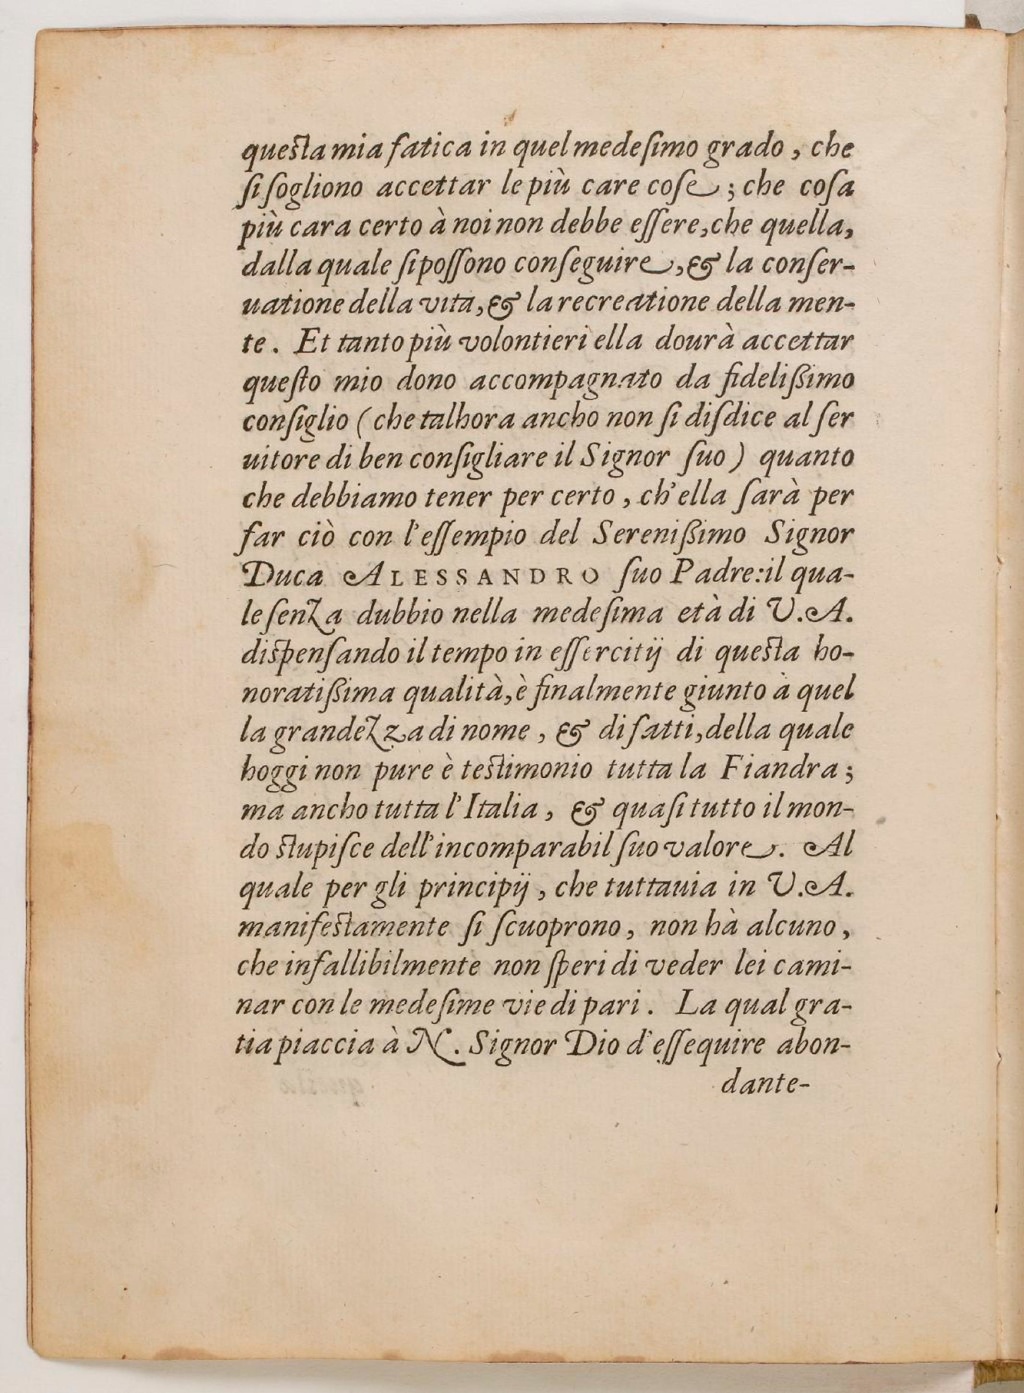 questa mia fatica in quel medeſimo grado, che
ſi ſogliono accettar le più care coſe; che coſa
più cara certo à noi non debbe eſſere, che quella,
dalla quale ſi poſſono conſeguire, & la conſer-
uatione della vita, & la recreatione della men-
te. Et tanto più volontieri ella dourà accettar
queſto mio dono accompagnato da fideliſsimo
conſiglio (che talhora ancho non ſi diſdice al ſer
uitore di ben conſigliare il Signor ſuo) quanto
che debbiamo tener per certo, ch'ella ſarà per
far ciò con l'eſſempio del Sereniſsimo Signor
Duca ALESSANDRO ſuo Padre: il qua-
le ſenza dubbio nella medeſima età di V.A.
diſpenſando il tempo in eſſercitij di questa ho-
noratiſsima qualità, è finalmente giunto à quel
la grandezza di nome, & di fatti, della quale
hoggi non pure è testimonio tutta la Fiandra;
ma ancho tutta l'Italia, & quaſi tutto il mon-
do stupiſce dell'incomparabil ſuo valore. Al
quale per gli principij, che tuttauia in V.A.
manifestamente ſi ſcuoprono, non hà alcuno,
che infallibilmente non ſperi di veder lei cami-
nar con le medeſime vie di pari. La qual gra-
tia piaccia à N. Signor Dio d'eſſequire abon-
dante-